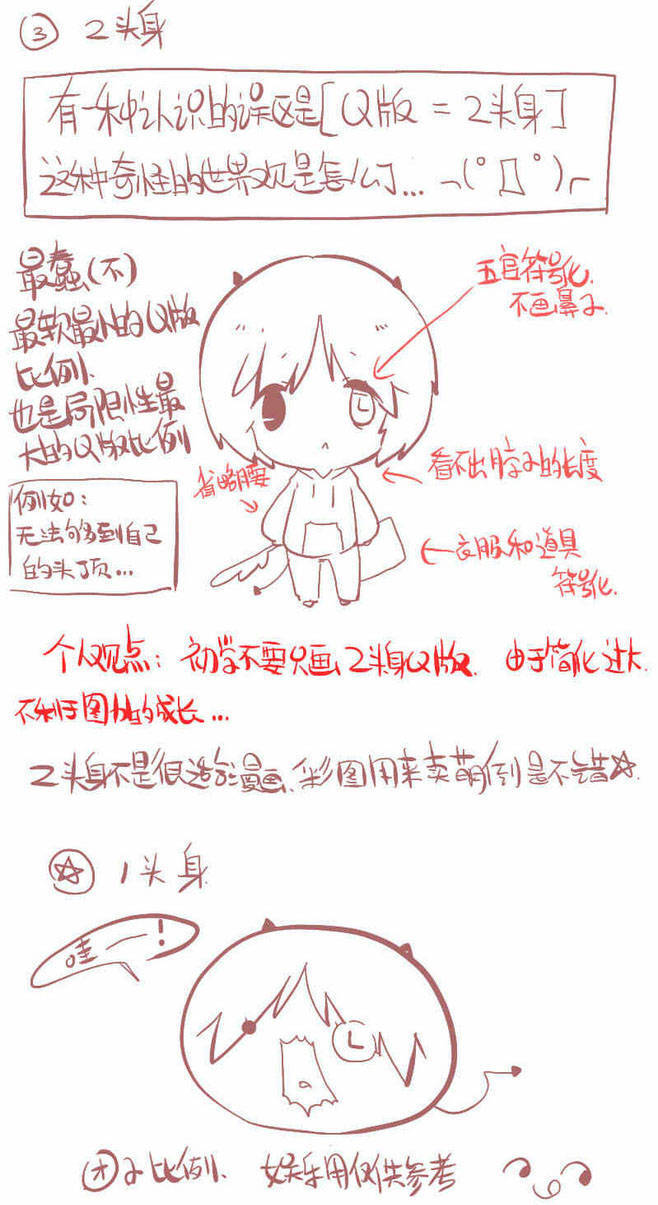 ③ 2头身
有一种认识的误区是[Q版 = 2头身]
这种奇怪的世界观是怎么了... ¬(°Д°)⌐
最蠢(不)
最软最小的Q版
比例、
也是局限性最
大的Q版比例
例如:
无法够到自己
的头顶...
五官符号化、
不画鼻子、
看不出脖子的长度
省略腰
衣服和道具
符号化、
个人观点: 初学不要只画2头身Q版、由于简化过大、
不利于图力的成长...
2头身不是很适合漫画、彩图用来卖萌倒是不错☆
☆ 1头身
哇一!
团子比例、娱乐用仅供参考